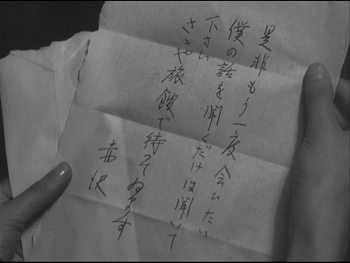 是非もう一度会ひたい
僕の話を聞くだけは聞いて
下さい
さゝや旅館で待て居ます
赤沢